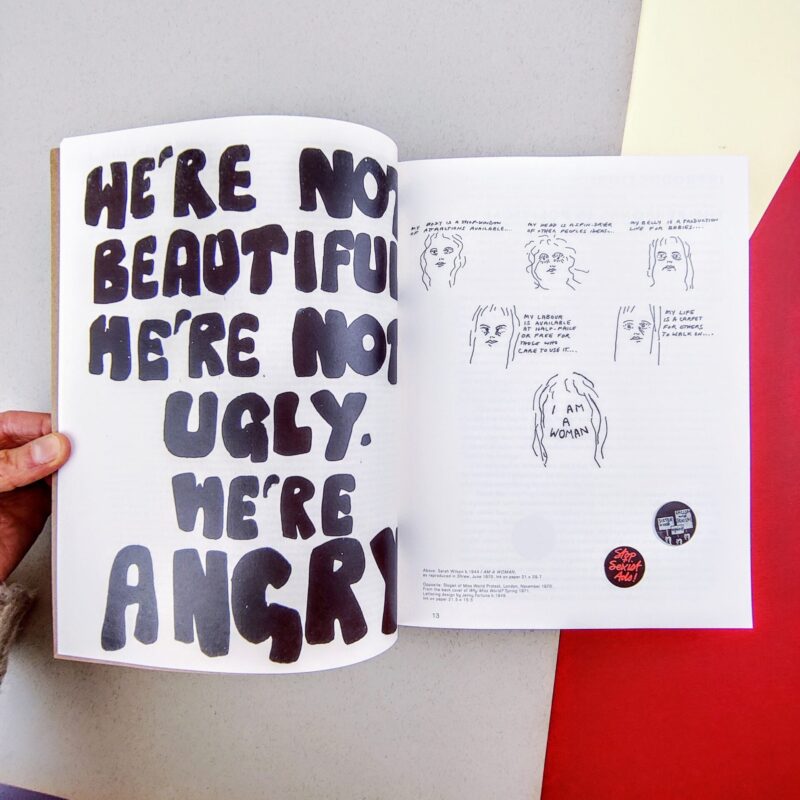 WE'RE NOT
BEAUTIFUL
WE'RE NOT
UGLY.
WE'RE
ANGRY
MY BODY IS A SHOP-WINDOW
OF ATTRACTIONS AVAILABLE...
MY HEAD IS A SPIN-DRYER
OF OTHER PEOPLES IDEAS...
MY BELLY IS A PRODUCTION
LINE FOR BABIES....
MY LABOUR
IS AVAILABLE
AT HALF-PRICE
OR FREE FOR
THOSE WHO
CARE TO USE IT....
MY LIFE
IS A CARPET
FOR OTHERS
TO WALK ON....
I AM
A
WOMAN
Stop
Sexist
Ads!
Above: Sarah Wilson b.1944 I AM A WOMAN,
as reproduced in Shrew, June 1970. Ink on paper 21 x 29.7
Opposite: Slogan of Miss World Protest, London, November 1970.
From the back cover of Why Miss World? Spring 1971.
Lettering design by Jenny Fortune b.
Ink on paper 21.3 x 15.5
13